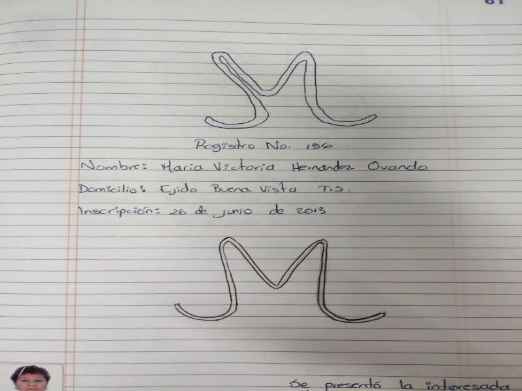 61
Registro No. 156
Nombre: Maria Victoria Hernandez Ovando
Domicilio: Ejido Buena Vista T.J.
Inscripción: 26 de junio de 2013
Se presentó la interesada